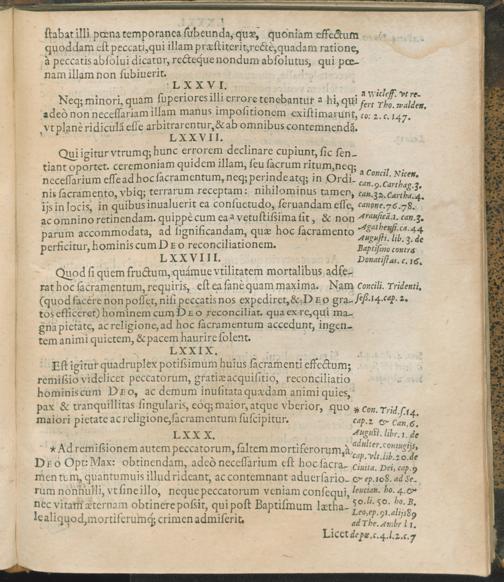 stabat illi pœna temporanea subeunda, quæ, quoniam effectum
quoddam est peccati, qui illam præstiterit, rectè, quadam ratione,
à peccatis absolui dicatur, recteque nondum absolutus, qui pœ-
nam illam non subiuerit.
LXXVI.
Neq; minori, quam superiores illi errore tenebantur a hi, qui
adeò non necessariam illam manus impositionem existimarunt,
vt planè ridiculã esse arbitrarentur, & ab omnibus contemnendã.
a Wicleff. vt re-
fert Tho. walden.
to: 2. c. 147.
LXXVII.
Qui igitur vtrumq; hunc errorem declinare cupiunt, sic sen-
tiant oportet. ceremoniam quidem illam, seu sacrum ritum, neq;
necessarium esse ad hoc sacramentum, neq; perinde atq; in Ordi-
nis sacramento, vbiq; terrarum receptam: nihilominus tamen,
ijs in locis, in quibus inualuerit ea consuetudo, seruandam esse,
ac omnino retinendam. quippè cum ea a vetustissima sit, & non
parum accommodata, ad significandam, quæ hoc sacramento
perficitur, hominis cum DEO reconciliationem.
a Concil. Nicen.
can. 9. Carthag. 3.
can. 32. Cartha. 4.
canone. 76. 78.
Arausicã. 1. can. 3.
Agatheñ. ca. 44
Augusti. lib. 3. de
Baptismo contra
Donatistas. c. 16.
LXXVIII.
Quod si quem fructum, quámue vtilitatem mortalibus adfe-
rat hoc sacramentum, requiris, est ea sanè quam maxima. Nam
(quod facere non posset, nisi peccatis nos expediret, & DEO gra-
tos efficeret) hominem cum DEO reconciliat. qua ex re, qui ma-
gna pietate, ac religione, ad hoc sacramentum accedunt, ingen-
tem animi quietem, & pacem haurire solent.
Concili. Tridenti.
seß. 14. cap. 2.
LXXIX.
Est igitur quadruplex potissimum huius sacramenti effectum;
remissio videlicet peccatorum, gratiæ acquisitio, reconciliatio
hominis cum DEO, ac demum inusitata quædam animi quies,
pax & tranquillitas singularis, eóq; maior, atque vberior, quo
maiori pietate ac religione, sacramentum suscipitur.
LXXX.
* Ad remissionem autem peccatorum, saltem mortiferorum, à
DEO Opt: Max: obtinendam, adeò necessarium est hoc sacra-
mentum, quantumuis illud rideant, ac contemnant aduersario-
rum nonnulli, vt sine illo, neque peccatorum veniam consequi,
nec vitam æternam obtinere possit, qui post Baptismum lætha-
le aliquod, mortiferumq; crimen admiserit.
* Con. Trid. s. 14.
cap. 2 & Can. 6.
August. libr. 1. de
adulter. coniugijs,
cap. vlt. lib. 20. de
Ciuita. Dei, cap. 9
& ep. 108. ad Se-
leucian. ho. 4. &
50. li. 50. ho. B.
Leo, ep. 91. aliis 89
ad The. Ambr l 1.
de pœ. c. 4. l. 2. c. 7
Licet